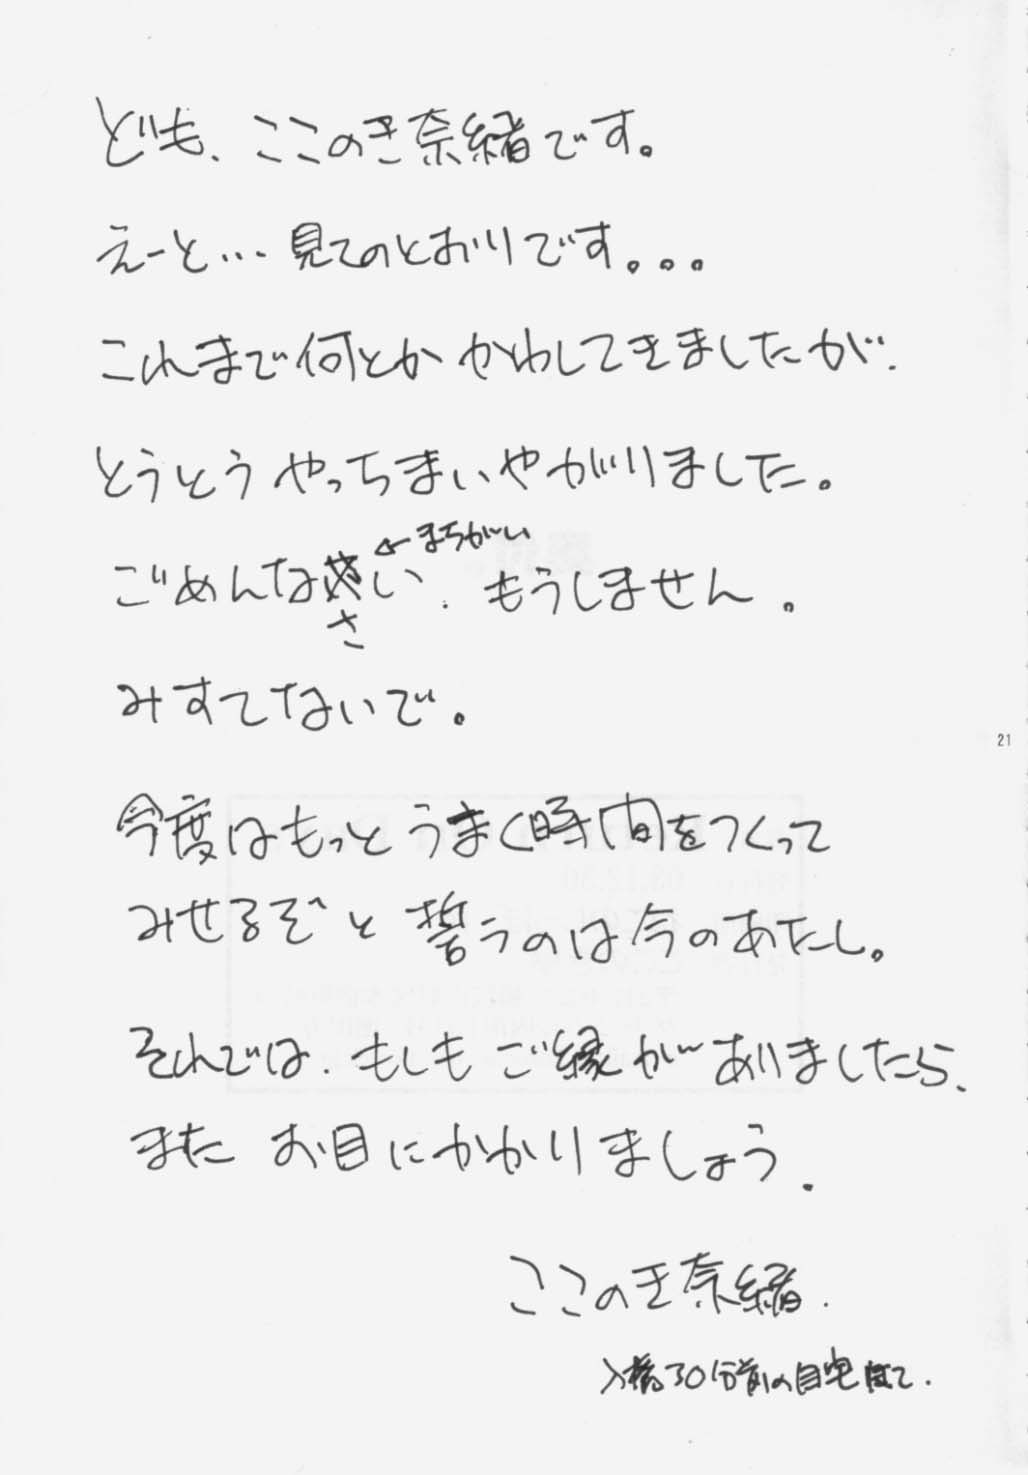 ども、ここのき奈緒です。
えーと…見てのとおりです。。。
これまで何とかかわしてきましたが、
とうとうやっちまいやがりました。
←まちがい
ごめんなさい、もうしません。
みすてないで。
今度はもっとうまく時間をつくって
みせるぞと誓うのは今のあたし。
それでは、もしもご縁がありましたら、
またお目にかかりましょう。
ここのき奈緒.
入稿30分前の自宅にて.
21